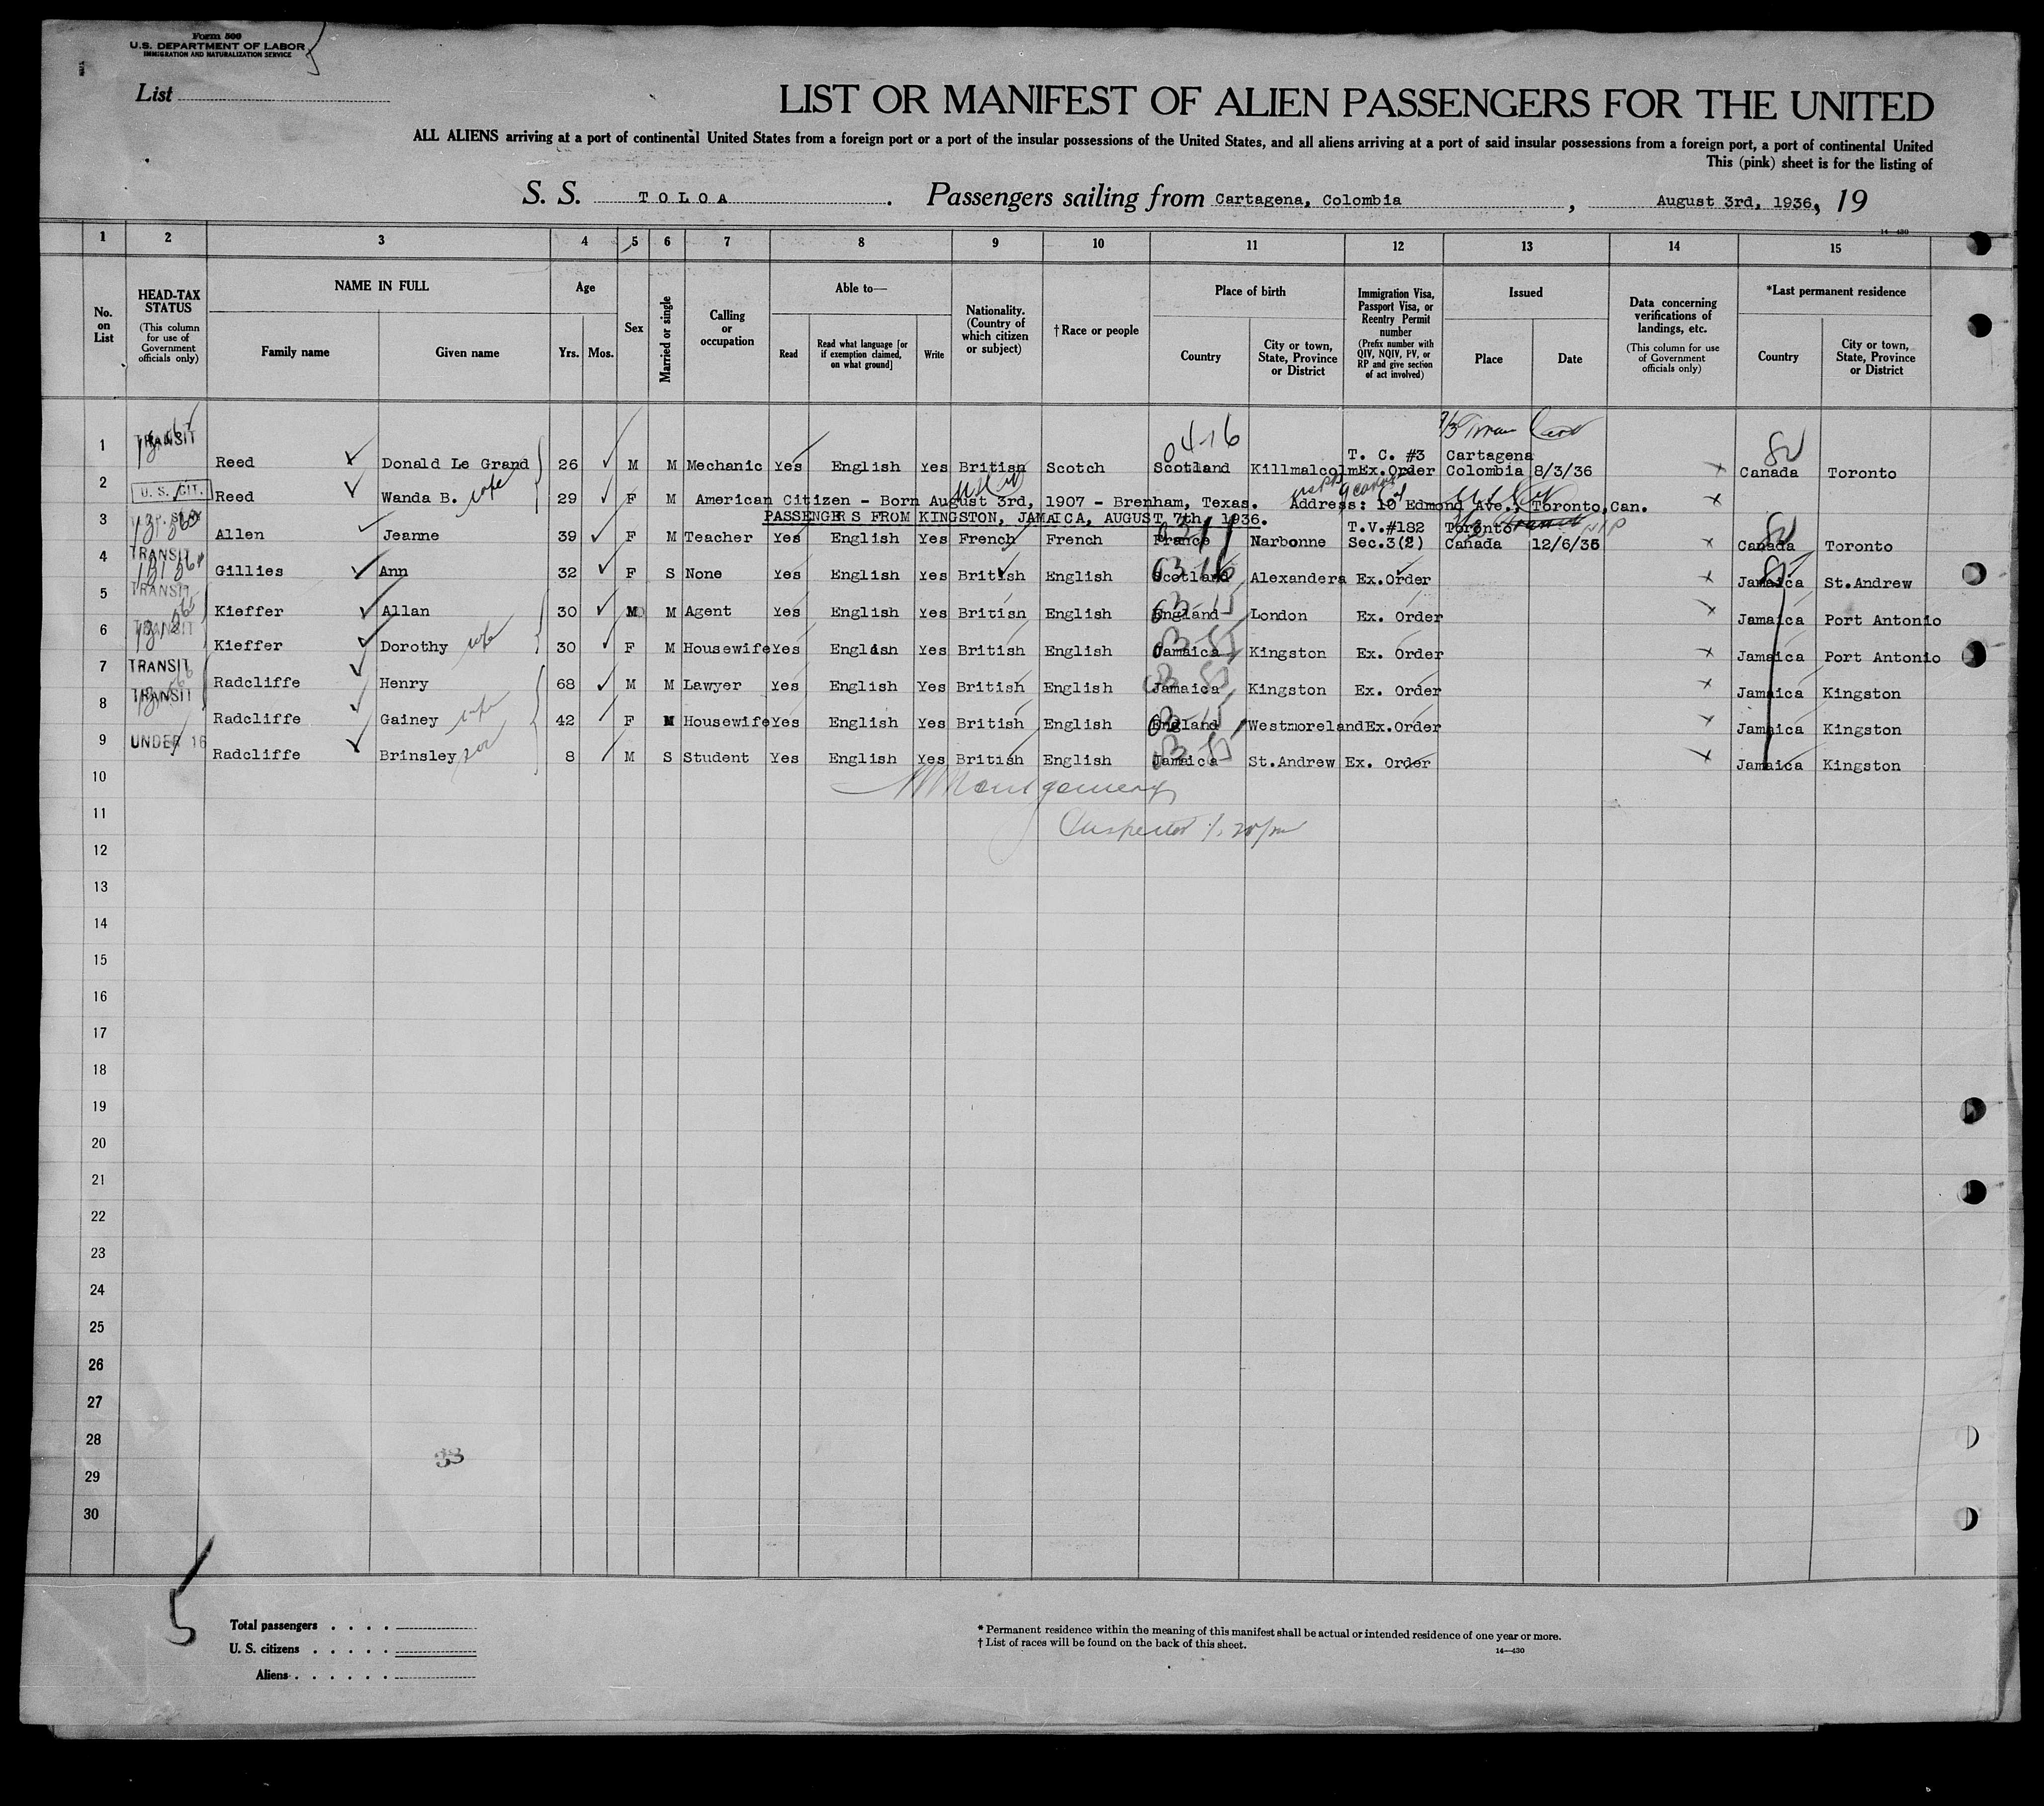 Form 500
U.S. DEPARTMENT OF LABOR
IMMIGRATION AND NATURALIZATION SERVICE
List
LIST OR MANIFEST OF ALIEN PASSENGERS FOR THE UNITED
ALL ALIENS arriving at a port of continental United States from a foreign port or a port of the insular possessions of the United States, and all aliens arriving at a port of said insular possessions from a foreign port, a port of continental United
This (pink) sheet is for the listing of
S. S. TOLOA. Passengers sailing from Cartagena, Colombia, August 3rd, 1936, 19
14—430
1 2 3 4 5 6 7 8 9 10 11 12 13 14 15
No. on List
HEAD-TAX STATUS (This column for use of Government officials only)
NAME IN FULL
Family name Given name
Age
Yrs. Mos.
Sex
Married or single
Calling or occupation
Able to—
Read Read what language [or if exemption claimed, on what ground] Write
Nationality. (Country of which citizen or subject)
†Race or people
Place of birth
Country City or town, State, Province or District
Immigration Visa, Passport Visa, or Reentry Permit number (Prefix number with QIV, NQIV, PV, or RP and give section of act involved)
Issued
Place Date
Data concerning verifications of landings, etc. (This column for use of Government officials only)
*Last permanent residence
Country City or town, State, Province or District
04-16
T. C. #3 Cartagena
1 TRANSIT Reed Donald Le Grand 26 M M Mechanic Yes English Yes British Scotch Scotland Killmalcolm Ex.Order Colombia 8/3/36 Canada Toronto
2 U. S. CIT. Reed Wanda B. wife 29 F M American Citizen - Born August 3rd, 1907 - Brenham, Texas. Address: 10 Edmond Ave., Toronto, Can.
PASSENGERS FROM KINGSTON, JAMAICA, AUGUST 7th, 1936.
T.V.#182 Toronto
3 Allen Jeanne 39 F M Teacher Yes English Yes French French France Narbonne Sec.3(2) Canada 12/6/35 Canada Toronto
4 TRANSIT Gillies Ann 32 F S None Yes English Yes British English Scotland Alexandera Ex.Order Jamaica St.Andrew
5 TRANSIT Kieffer Allan 30 M M Agent Yes English Yes British English England London Ex. Order Jamaica Port Antonio
6 TRANSIT Kieffer Dorothy wife 30 F M Housewife Yes English Yes British English Jamaica Kingston Ex. Order Jamaica Port Antonio
7 TRANSIT Radcliffe Henry 68 M M Lawyer Yes English Yes British English Jamaica Kingston Ex. Order Jamaica Kingston
8 TRANSIT Radcliffe Gainey wife 42 F M Housewife Yes English Yes British English England Westmoreland Ex.Order Jamaica Kingston
9 UNDER 16 Radcliffe Brinsley son 8 M S Student Yes English Yes British English Jamaica St.Andrew Ex. Order Jamaica Kingston
10 Montgomery
11 Inspector
12
13
14
15
16
17
18
19
20
21
22
23
24
25
26
27
28
33
29
30
Total passengers
U. S. citizens
Aliens
* Permanent residence within the meaning of this manifest shall be actual or intended residence of one year or more.
† List of races will be found on the back of this sheet.
14—430